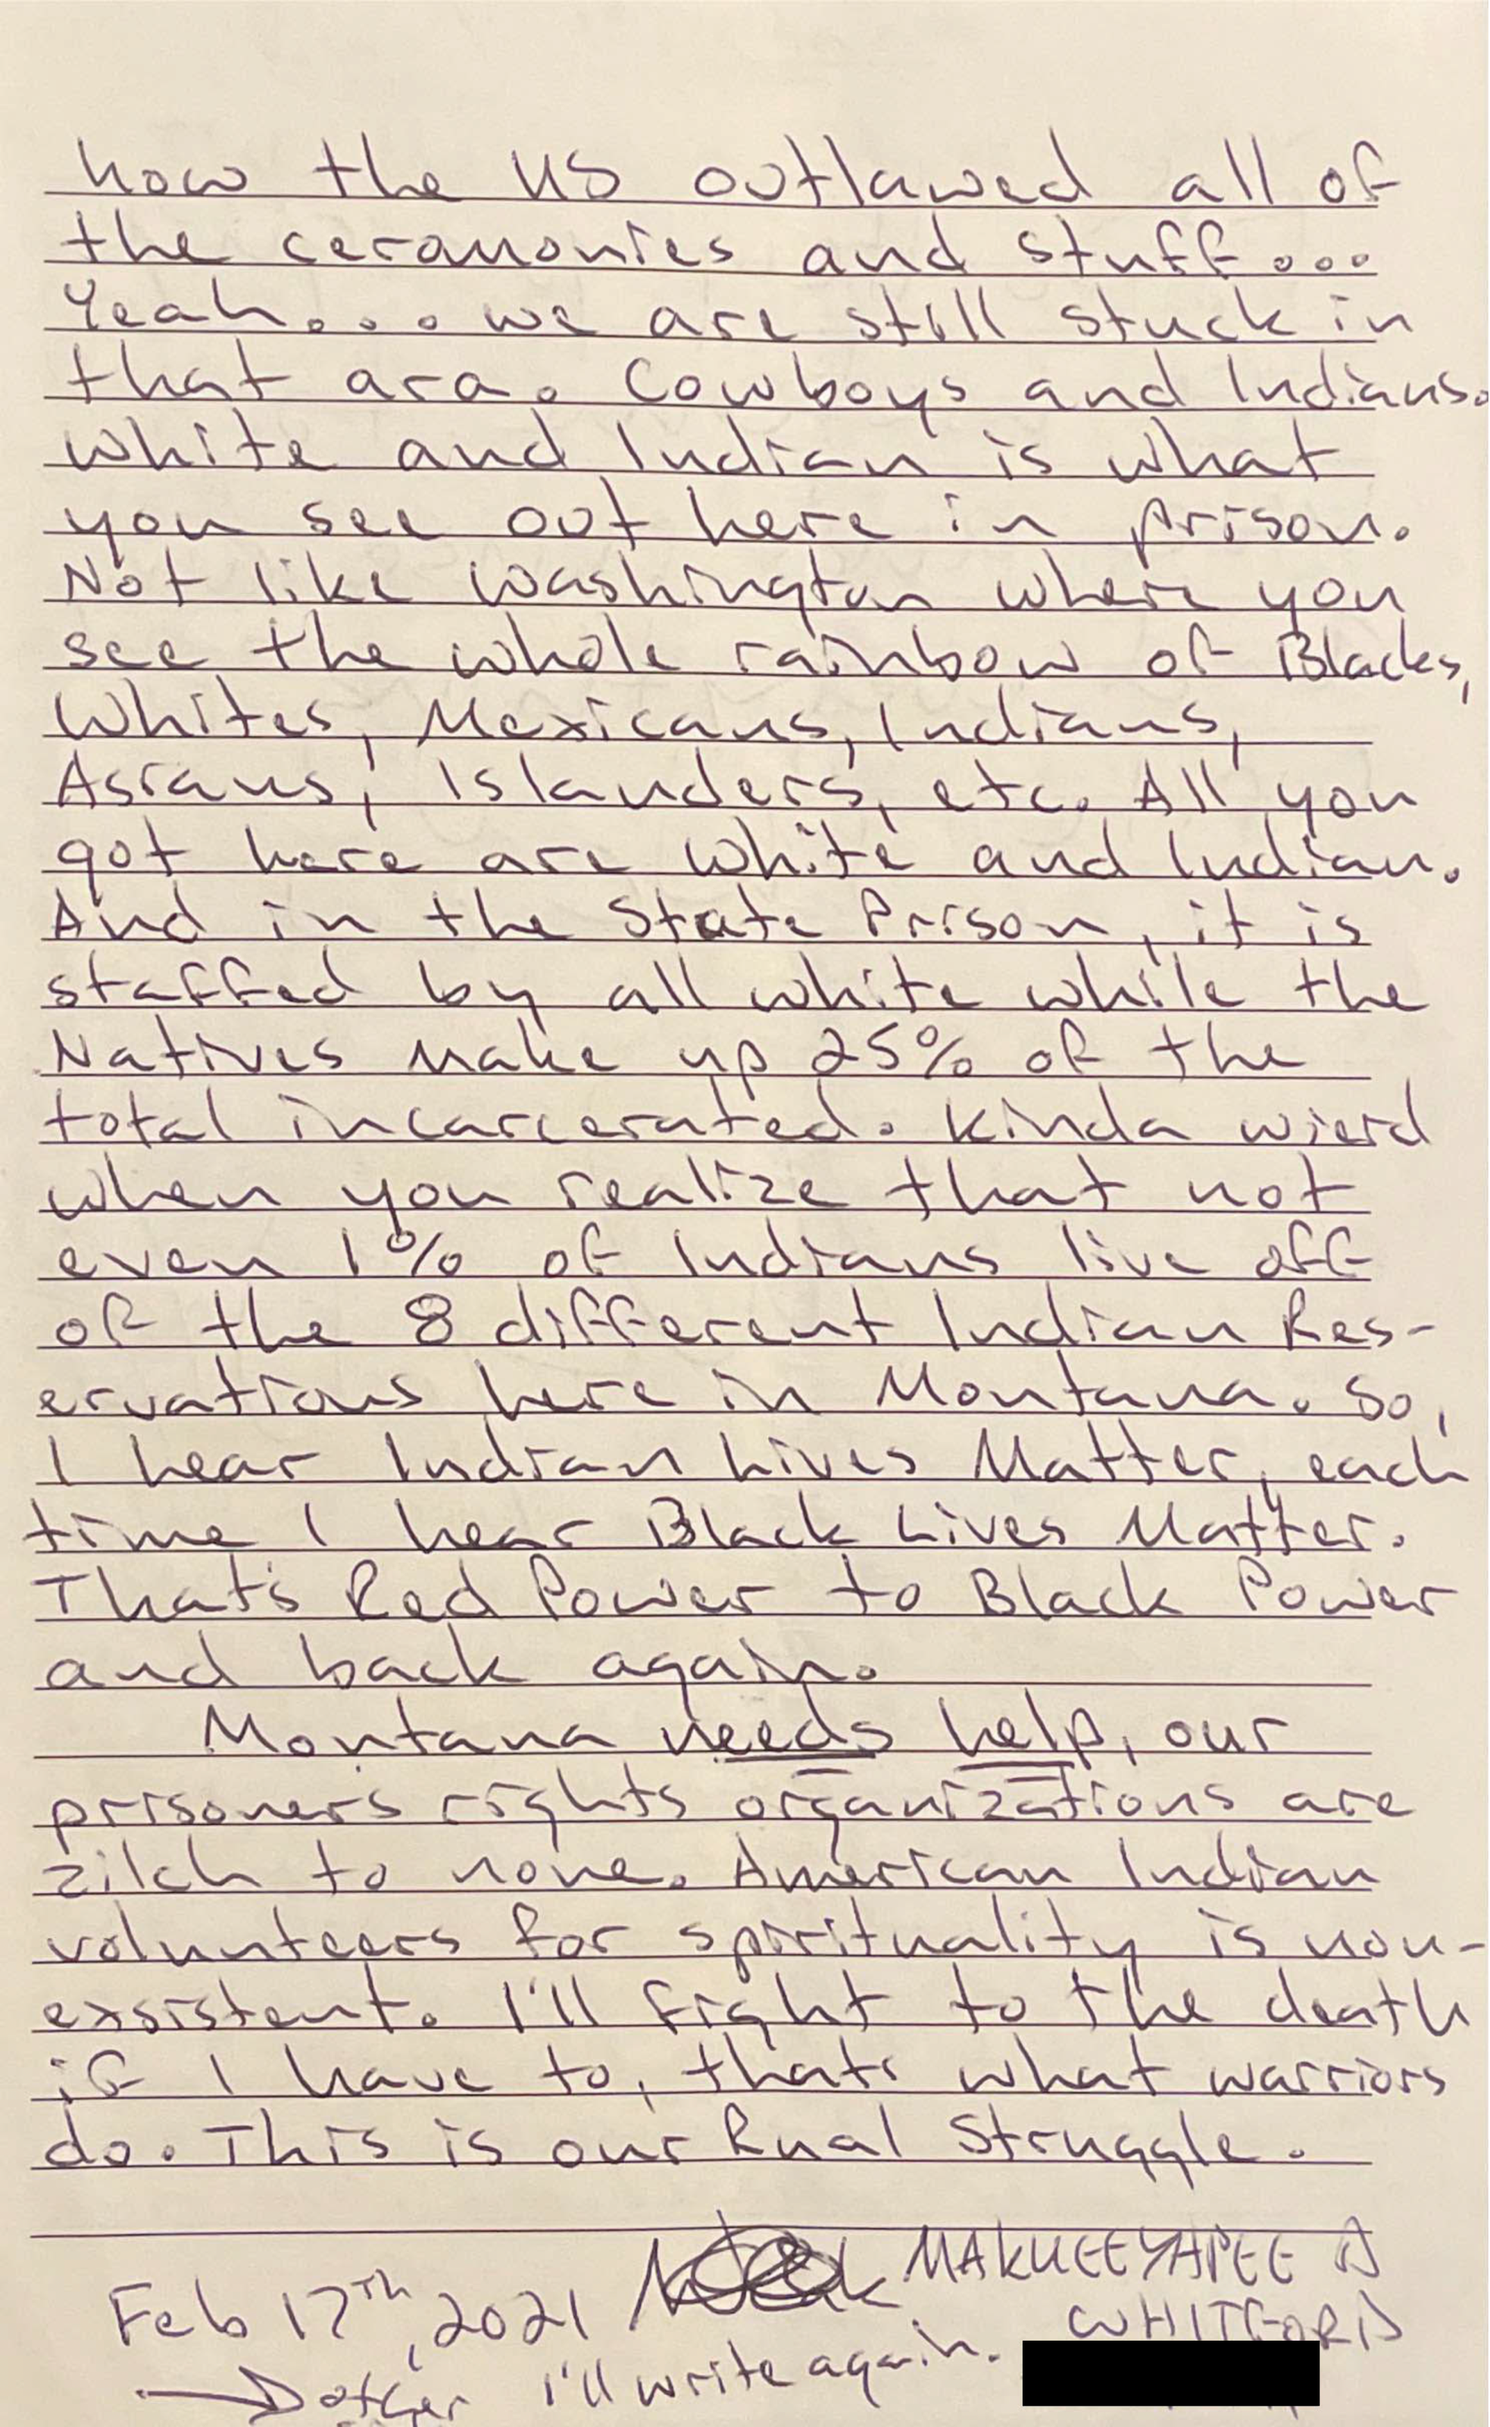 how the US outlawed all of
the ceramonies and stuff...
Yeah... we are still stuck in
that ara. Cowboys and Indians.
White and Indian is what
you see out here in prison.
Not like Washington where you
see the whole rainbow of Blacks,
Whites, Mexicans, Indians,
Asians, Islanders, etc. All you
got here are White and Indian.
And in the State Prison, it is
staffed by all white while the
Natives make up 25% of the
total incarcerated. Kinda wierd
when you realize that not
even 1% of Indians live off
of the 8 different Indian Res-
ervations here in Montana. So,
I hear Indian Lives Matter, each
time I hear Black Lives Matter.
That's Red Power to Black Power
and back again.
Montana needs help, our
prisoners rights organizations are
zilch to none. American Indian
volunteers for spirituality is non-
exsistent. I'll fight to the death
if I have to, thats what warriors
do. This is our Rual Struggle.
MAKUEEYAPEE D
WHITFORD
Feb 17th, 2021
I'll write again.